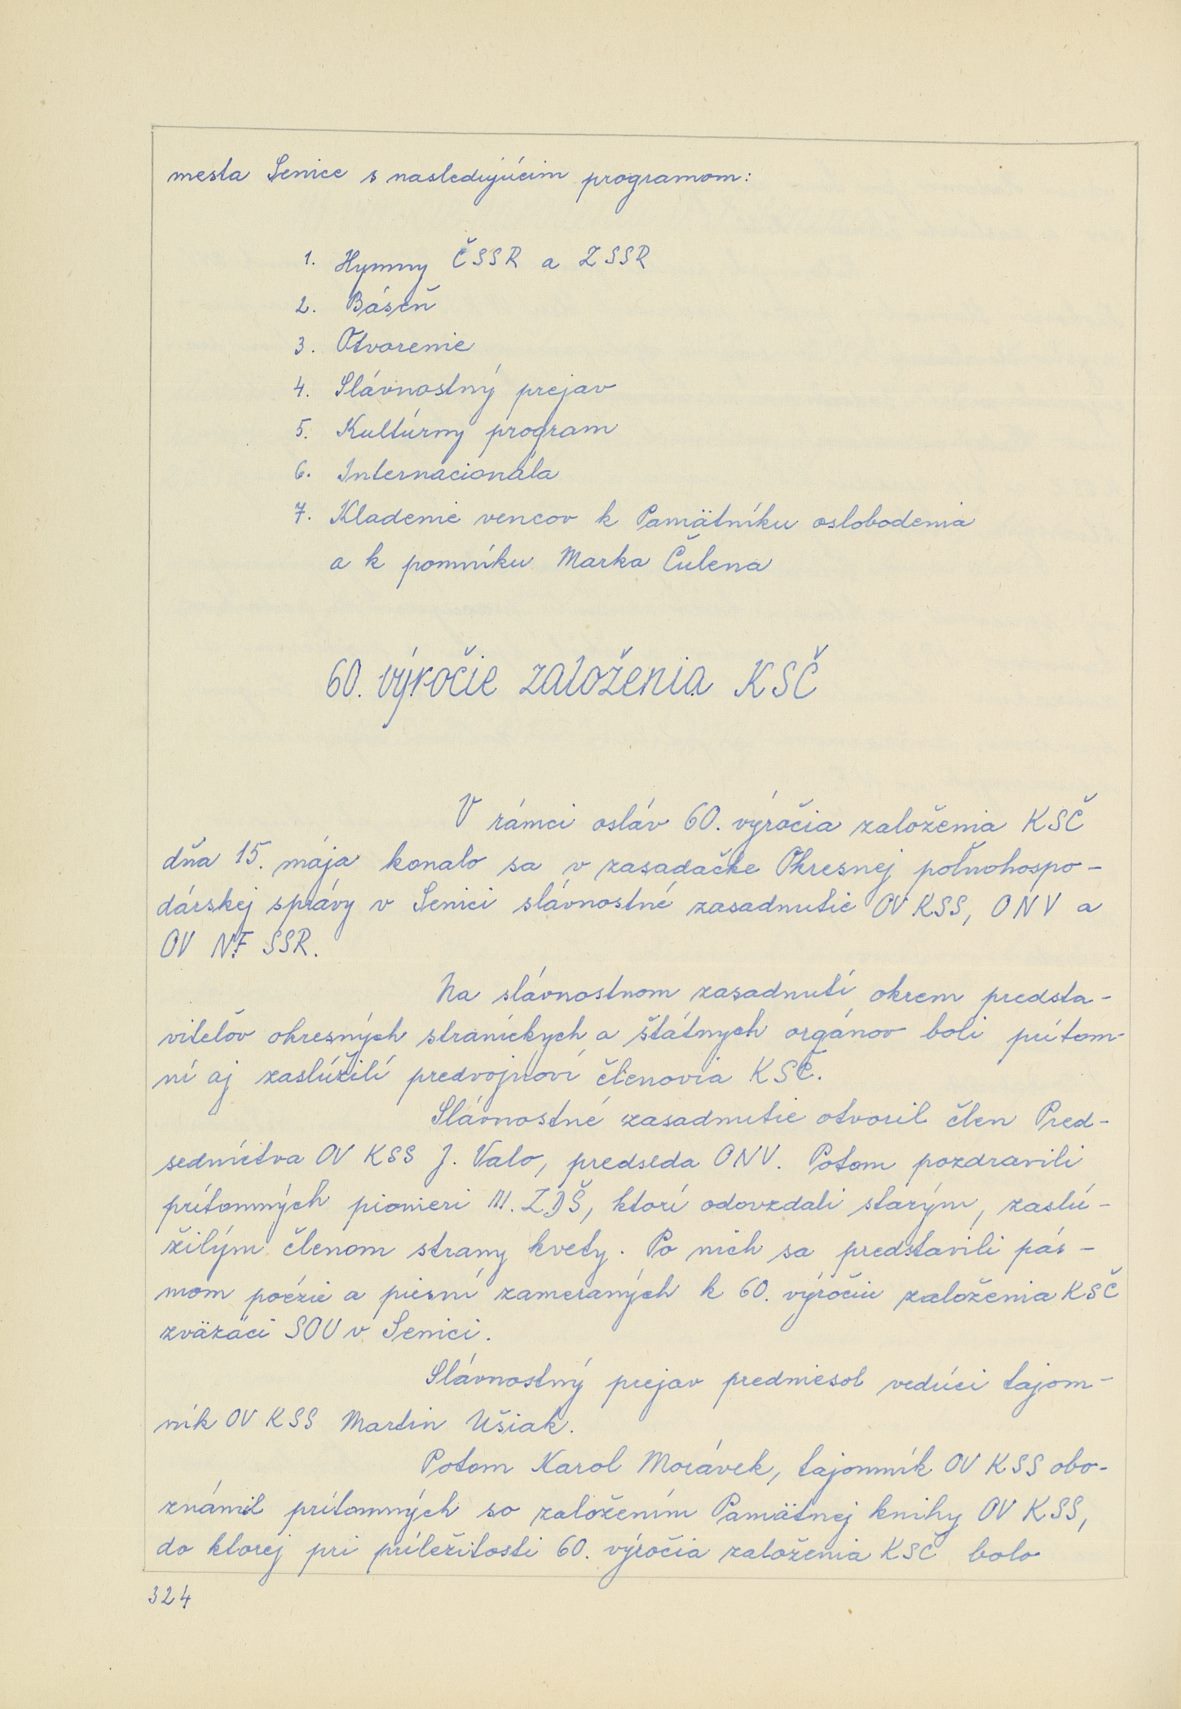 mesta Senice s nasledujúcim programom:
1. Hymny ČSSR a ZSSR
2. Báseň
3. Otvorenie
4. Slávnostný prejav
5. Kultúrny program
6. Internacionála
7. Kladenie vencov k Pamätníku oslobodenia
a k pomníku Marka Čulena
60. výročie založenia KSČ
V rámci osláv 60. výročia založenia KSČ
dňa 15. mája konalo sa v zasadačke Okresnej poľnohospo-
dárskej správy v Senici slávnostné zasadnutie OV KSS, ONV a
OV NF SSR.
Na slávnostnom zasadnutí okrem predsta-
viteľov okresných straníckych a štátnych orgánov boli prítom-
ní aj zaslúžilí predvojnoví členovia KSČ.
Slávnostné zasadnutie otvoril člen Pred-
sedníctva OV KSS J. Valo, predseda ONV. Potom pozdravili
prítomných pionieri III. ZDŠ, ktorí odovzdali starým, zaslú-
žilým členom strany kvety. Po nich sa predstavili pás-
mom poézie a piesní zameraných k 60. výročiu založenia KSČ
zväzáci SOU v Senici.
Slávnostný prejav predniesol vedúci tajom-
ník OV KSS Martin Ušiak.
Potom Karol Morávek, tajomník OV KSS obo-
známil prítomných so založením Pamätnej knihy OV KSS,
do ktorej pri príležitosti 60. výročia založenia KSČ bolo
324